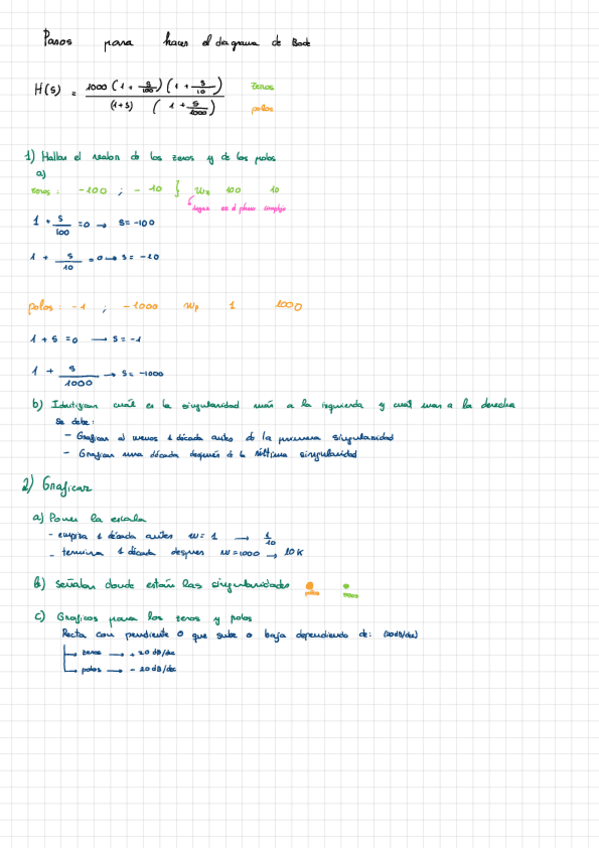 Pasos para hacer el diagrama de Bode
H(s) = 1000 (1 + s/100) (1 + s/10) / (1+s) (1 + s/1000)
zeros
polos
1) Hallar el valor de los zeros y de los polos
a)
zeros : -100 ; - 10 } wz 100 10
en el plano complejo
1 + s/100 = 0 → s = -100
1 + s/10 = 0 → s = -10
polos : -1 ; -1000 wp 1 1000
1 + s = 0 → s = -1
1 + s/1000 → s = -1000
b) Identificar cuál es la singularidad más a la izquierda y cuál mas a la derecha
Se debe :
- Graficar al menos 1 década antes de la primera singularidad
- Graficar una década después de la última singularidad
2) Graficar
a) Poner la escala
- empieza 1 década antes w = 1 → 1/10
- termina 1 década despues w = 1000 → 10K
b) Señalar donde están las singularidades
polos zeros
c) Graficos para los zeros y polos
Recta con pendiente 0 que sube o baja dependiendo de: (20dB/dec)
zeros → + 20 dB/dec
polos → - 20 dB/dec